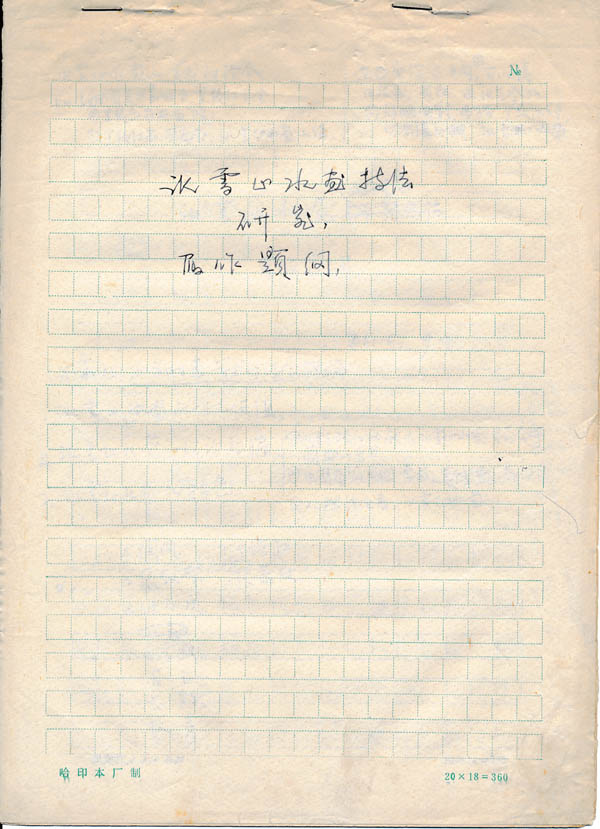 №
冰雪山水画技法
研究,
写作题纲,
哈印本厂制
20×18=360